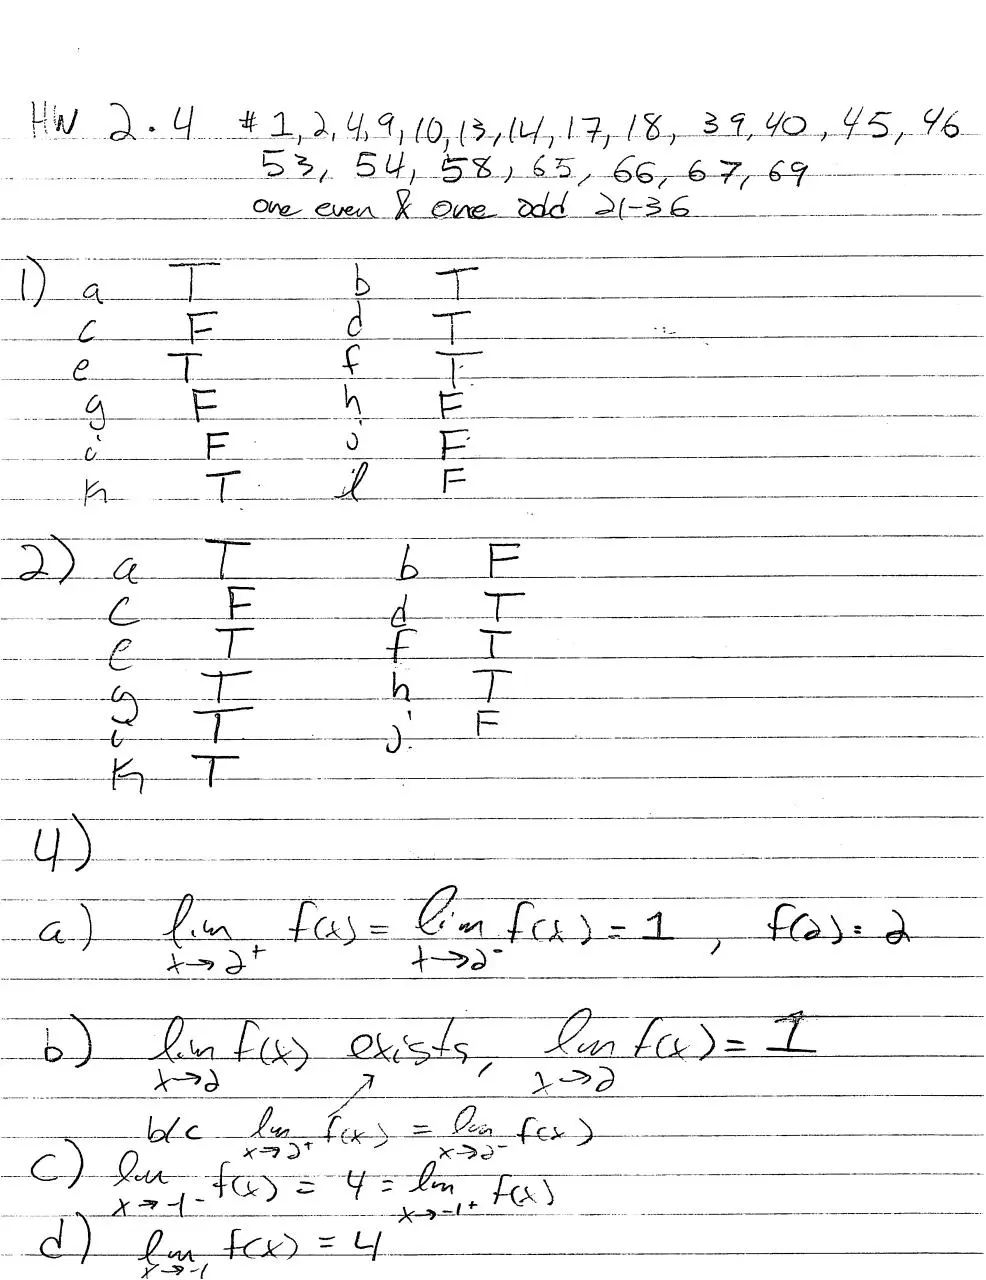 HW 2.4 # 1, 2, 4, 9, 10, 13, 14, 17, 18, 39, 40, 45, 46
53, 54, 58, 65, 66, 67, 69
one even & one odd 21-36
1) a T b T
c F d T
e T f T
g F h F
i F j F
k T l F
2) a T b F
c F d T
e T f T
g T h T
i T j F
k T
4)
a) lim x→2⁺ f(x) = lim x→2⁻ f(x) = 1 , f(2) = 2
b) lim x→2 f(x) exists, lim x→2 f(x) = 1
b/c lim x→2⁺ f(x) = lim x→2⁻ f(x)
c) lim x→-1⁻ f(x) = 4 = lim x→-1⁺ f(x)
d) lim x→-1 f(x) = 4